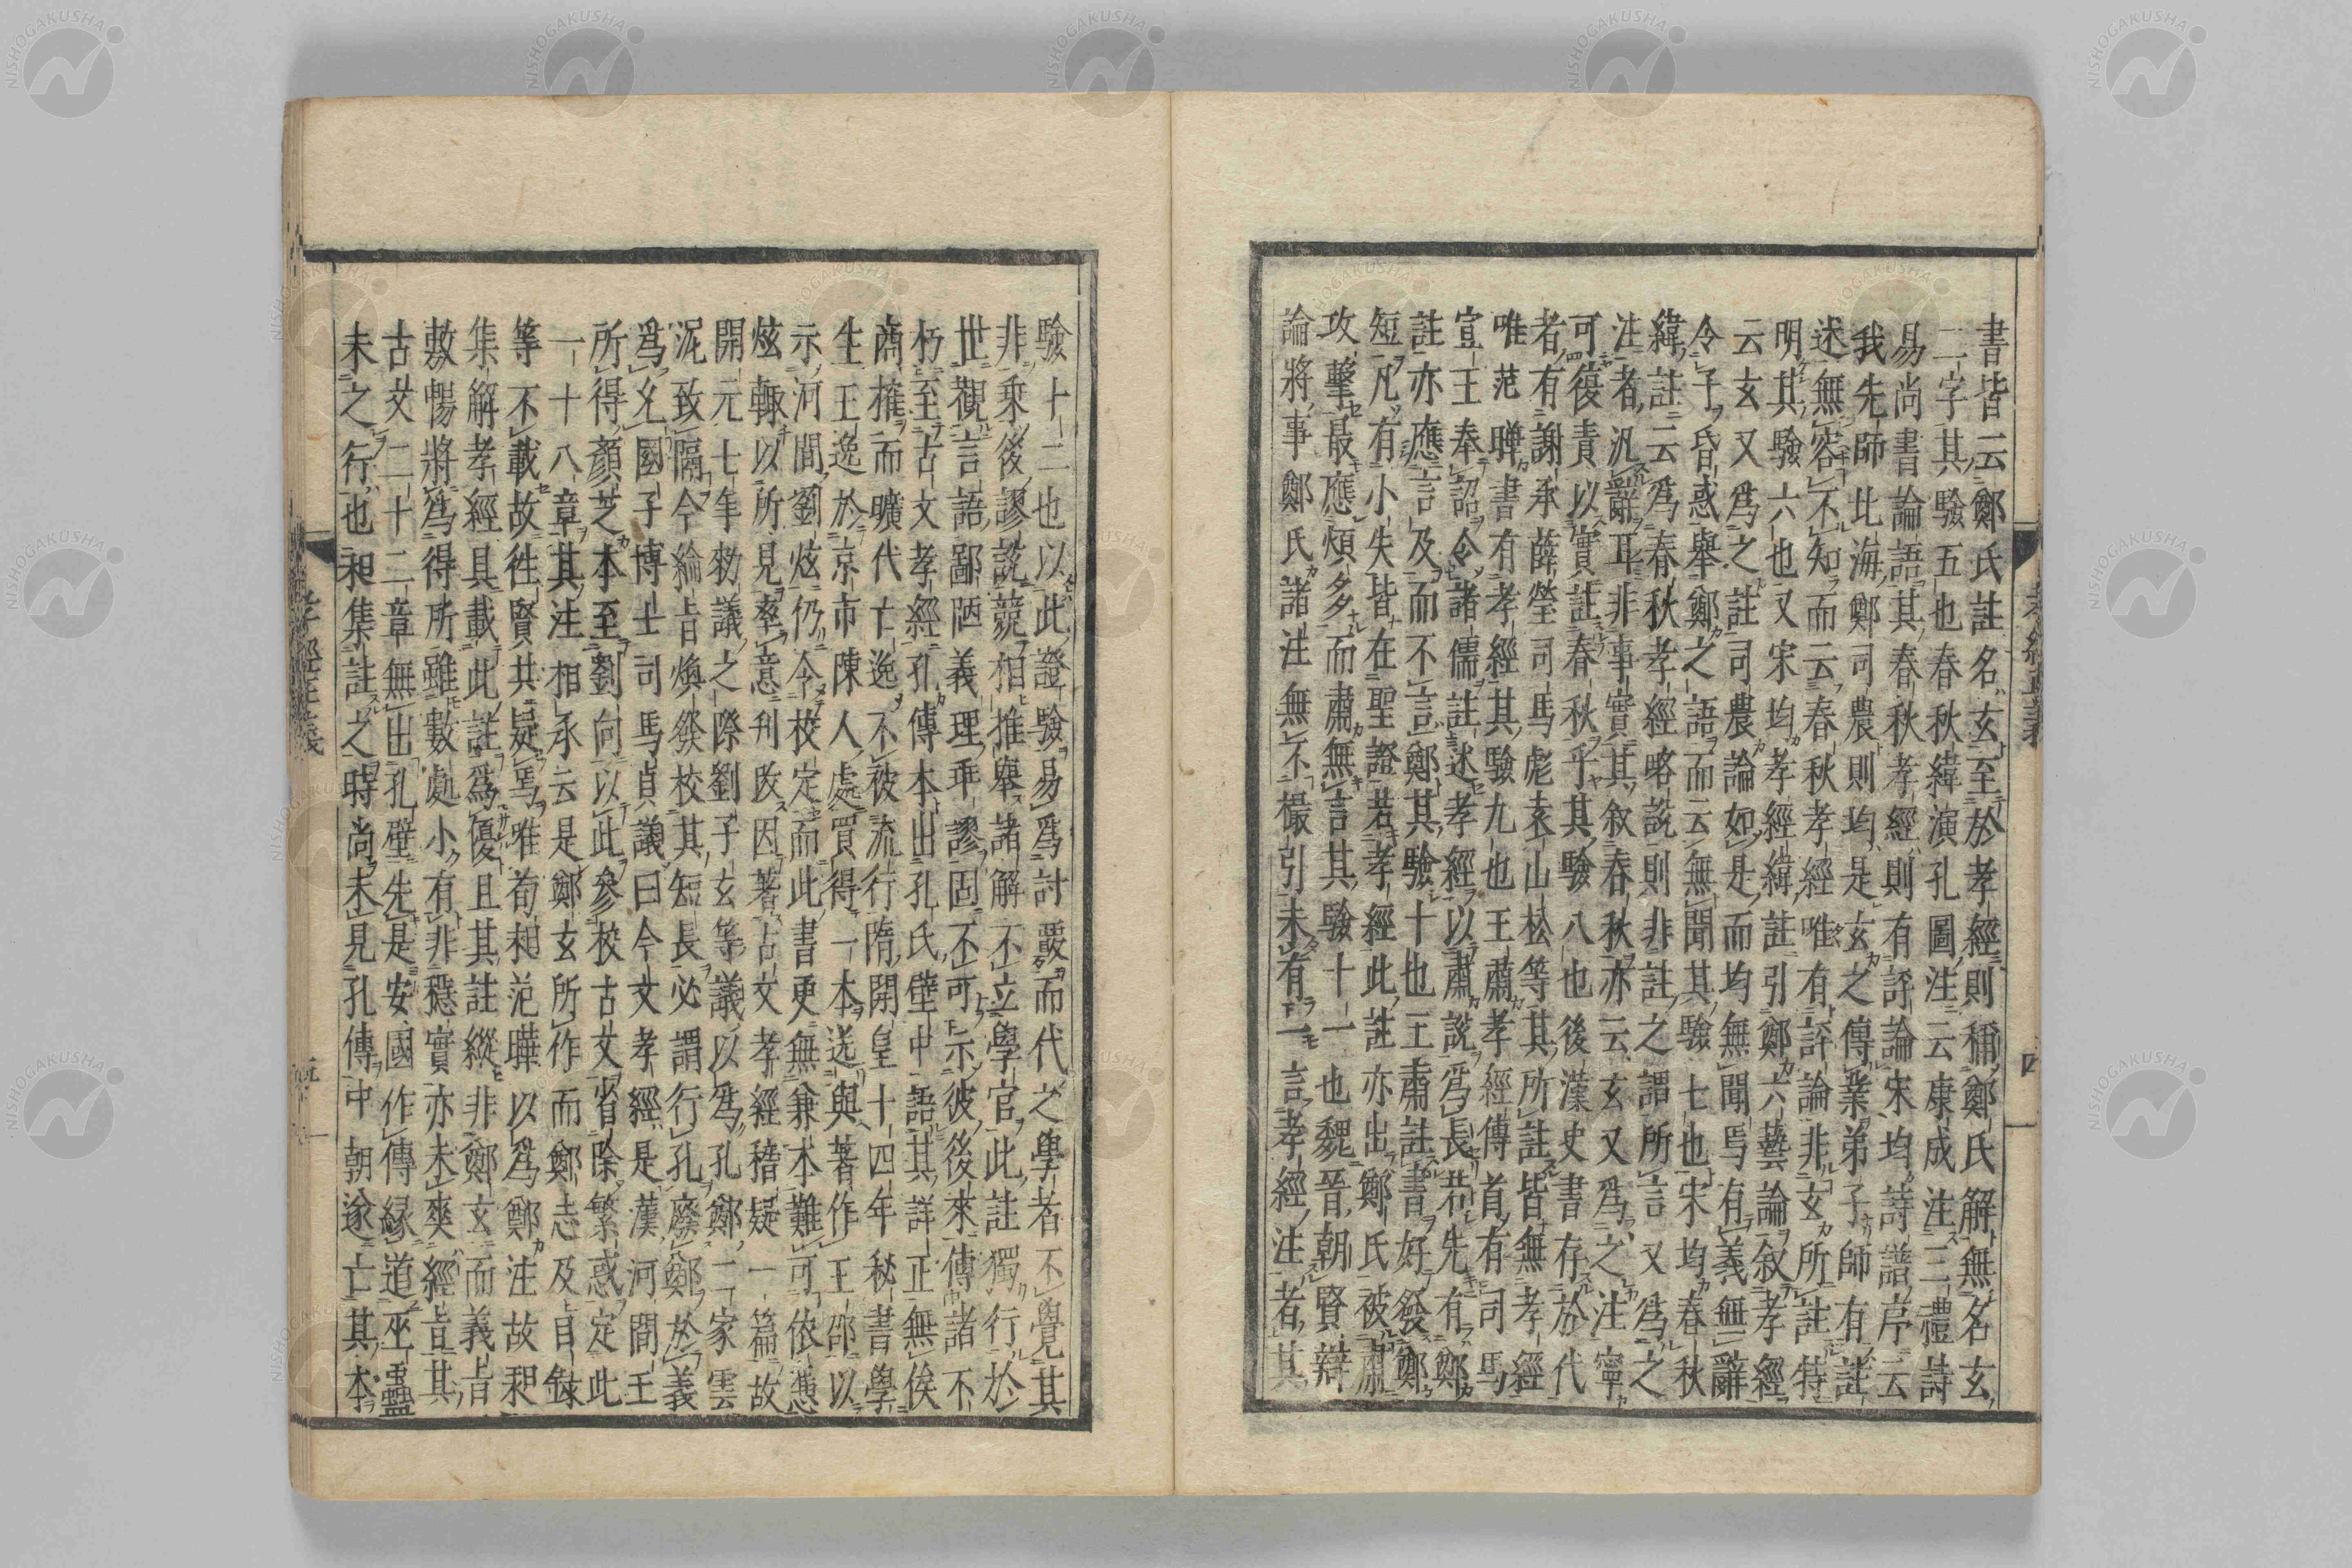 書皆云鄭氏註名玄至於孝經則稱鄭氏解無名玄
二字其驗五也春秋緯演孔圖注云康成注三禮詩
易尚書論語其春秋孝經則有評論宋均詩譜序云
我先師北海鄭司農則均是玄之傳業弟子師有註
述無容不知而云春秋孝經唯有評論非玄所註特
明其驗六也又宋均孝經緯註引鄭六藝論敘孝經
云玄又爲之註司農論如是而均無聞焉有義無辭
令予昏惑舉鄭之語而云無聞其驗七也宋均春秋
緯註云爲春秋孝經略說則非註之謂所言又爲之
注者汎辭耳非事實其敘春秋亦云玄又爲之注寧
可復責以實註春秋乎其驗八也後漢史書存於代
者有謝承薛瑩司馬彪袁山松等其所註皆無孝經
唯范曄書有孝經其驗九也王肅孝經傳首有司馬
宣王奉詔令諸儒註述孝經以肅說爲長若先有鄭
註亦應言及而不言鄭其驗十也王肅註書好發鄭
短凡有小失皆在聖證若孝經此註亦出鄭氏被肅
攻擊最應煩多而肅無言其驗十一也魏晉朝賢辯
論將事鄭氏諸注無不撮引未有一言孝經注者其
驗十二也以此證驗易爲討覈而代之學者不覺其
非乘後謬說競相推舉諸解不立學官此註獨行於
世觀言語鄙陋義理乖謬固不可示彼後來傳諸不
朽至古文孝經孔傳本出孔氏壁中語其詳正無俟
商搉而曠代亡逸不被流行隋開皇十四年秘書學
生王逸於京市陳人處買得一本送與著作王邵以
示河間劉炫仍令校定而此書更無兼本難可依憑
炫輙以所見率意刊改因著古文孝經稽疑一篇故
開元七年勑議之際劉子玄等議以爲孔鄭二家雲
泥致隔今綸旨煥發校其短長必謂行孔廢鄭於義
爲允國子博士司馬貞議曰今文孝經是漢河間王
所得顏芝本至劉向以此參校古文省除繁惑定此
一十八章其注相承云是鄭玄所作而鄭志及目錄
等不載故往賢共疑焉唯荀昶范曄以爲鄭注故昶
集解孝經具載此註爲優且其註縱非鄭玄而義旨
敷暢將爲得所雖數處小有非穩實亦未爽經旨其
古文二十二章無出孔壁先是安國作傳緣道巫蠱
未之行也昶集註之時尚未見孔傳中朝遂亡其本